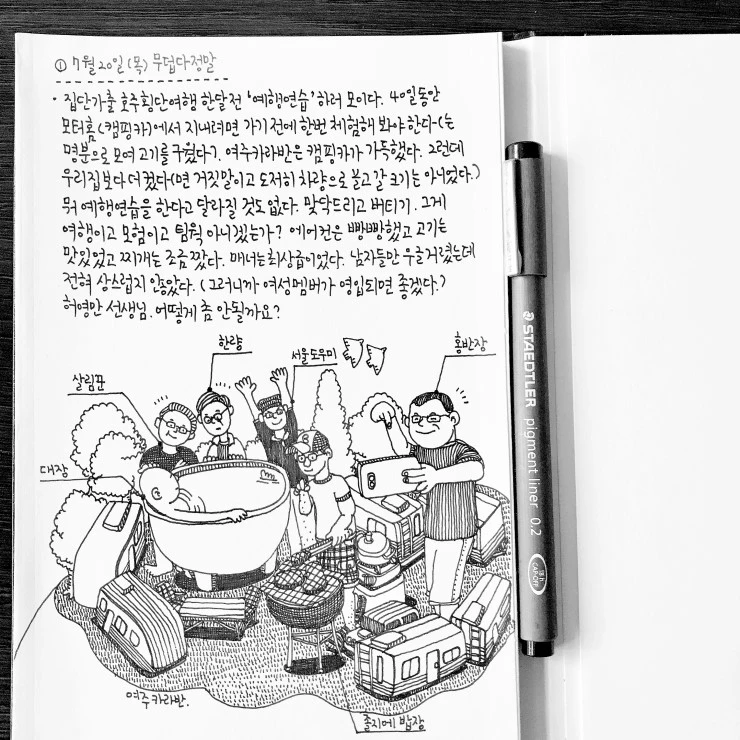 ① 7월 20일 (목) 무덥다 정말
· 집단가출 호주횡단여행 한달전 '예행연습'하러 모이다. 40일동안
모터홈(캠핑카)에서 지내려면 가기 전에 한번 체험해 봐야 한다-(는
명분으로 모여 고기를 구웠다). 여주카라반은 캠핑카가 가득했다. 그런데
우리집보다 더 컸다(면 거짓말이고 도저히 차량으로 볼고 갈 크기는 아니었다.)
뭐 예행연습을 한다고 달라질 것도 없다. 맞닥드리고 버티기. 그게
여행이고 모험이고 팀웍 아니겠는가? 에어컨은 빵빵했고 고기는
맛있었고 찌개는 조금 짰다. 매너는 최상급이었다. 남자들만 우글거렸는데
전혀 상스럽지 않았다. (그러니까 여성멤버가 영입되면 좋겠다.)
허영만 선생님. 어떻게 좀 안될까요?
한량
서울도우미
홍반장
살림꾼
대장
여주카라반.
졸지에 밥장
STAEDTLER pigment liner 0.2